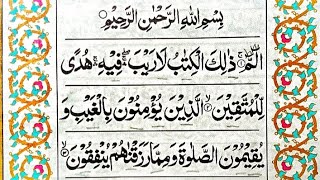 بِسْمِ اللّٰهِ الرَّحْمٰنِ الرَّحِيْمِ
الٓمّٓ ۚ ۱ ذٰلِكَ الْكِتٰبُ لَا رَيْبَ ۛ فِيْهِ ۛ هُدًى
لِّلْمُتَّقِيْنَ ۙ ۲ الَّذِيْنَ يُؤْمِنُوْنَ بِالْغَيْبِ وَ
يُقِيْمُوْنَ الصَّلٰوةَ وَمِمَّا رَزَقْنٰهُمْ يُنْفِقُوْنَ ۙ ۳